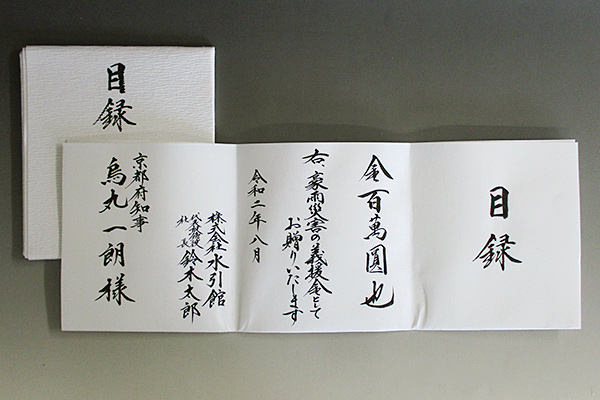 目録
目録
金百萬圓也
右、豪雨災害の義援金として
お贈りいたします
令和二年八月
株式会社水引館
代表取締役
社長
鈴木太郎
京都府知事
烏丸一朗様